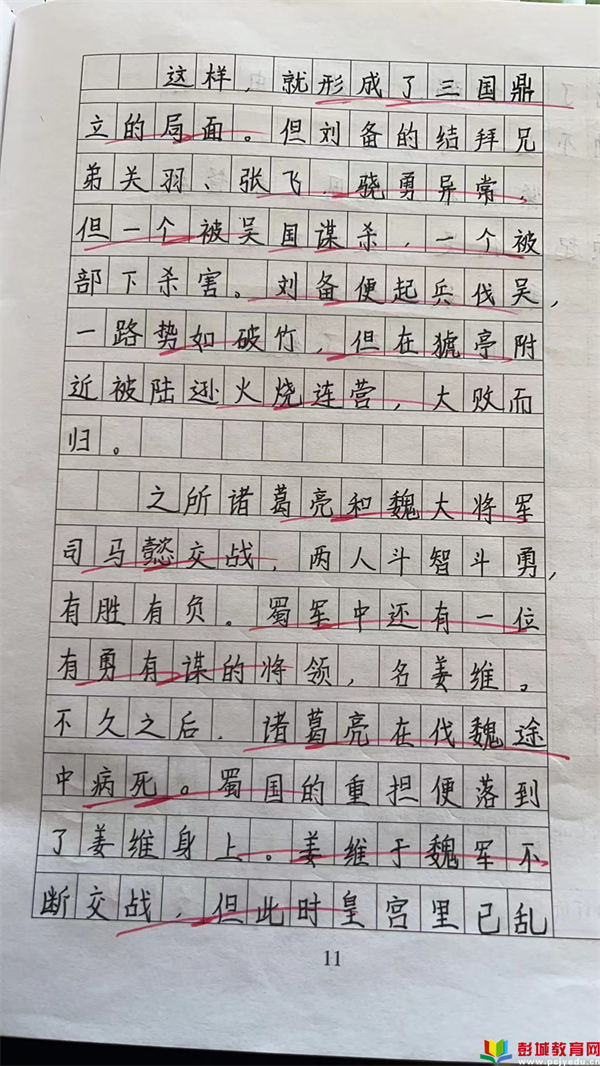 这样，就形成了三国鼎
立的局面。但刘备的结拜兄
弟关羽、张飞，骁勇异常，
但一个被吴国谋杀，一个被
部下杀害。刘备便起兵伐吴，
一路势如破竹，但在猇亭附
近被陆逊火烧连营，大败而
归。
之所诸葛亮和魏大将军
司马懿交战，两人斗智斗勇，
有胜有负。蜀军中还有一位
有勇有谋的将领，名姜维。
不久之后，诸葛亮在伐魏途
中病死。蜀国的重担便落到
了姜维身上。姜维于魏军不
断交战，但此时皇宫里已乱
11
彭城教育网
www.pcjyedu.cn